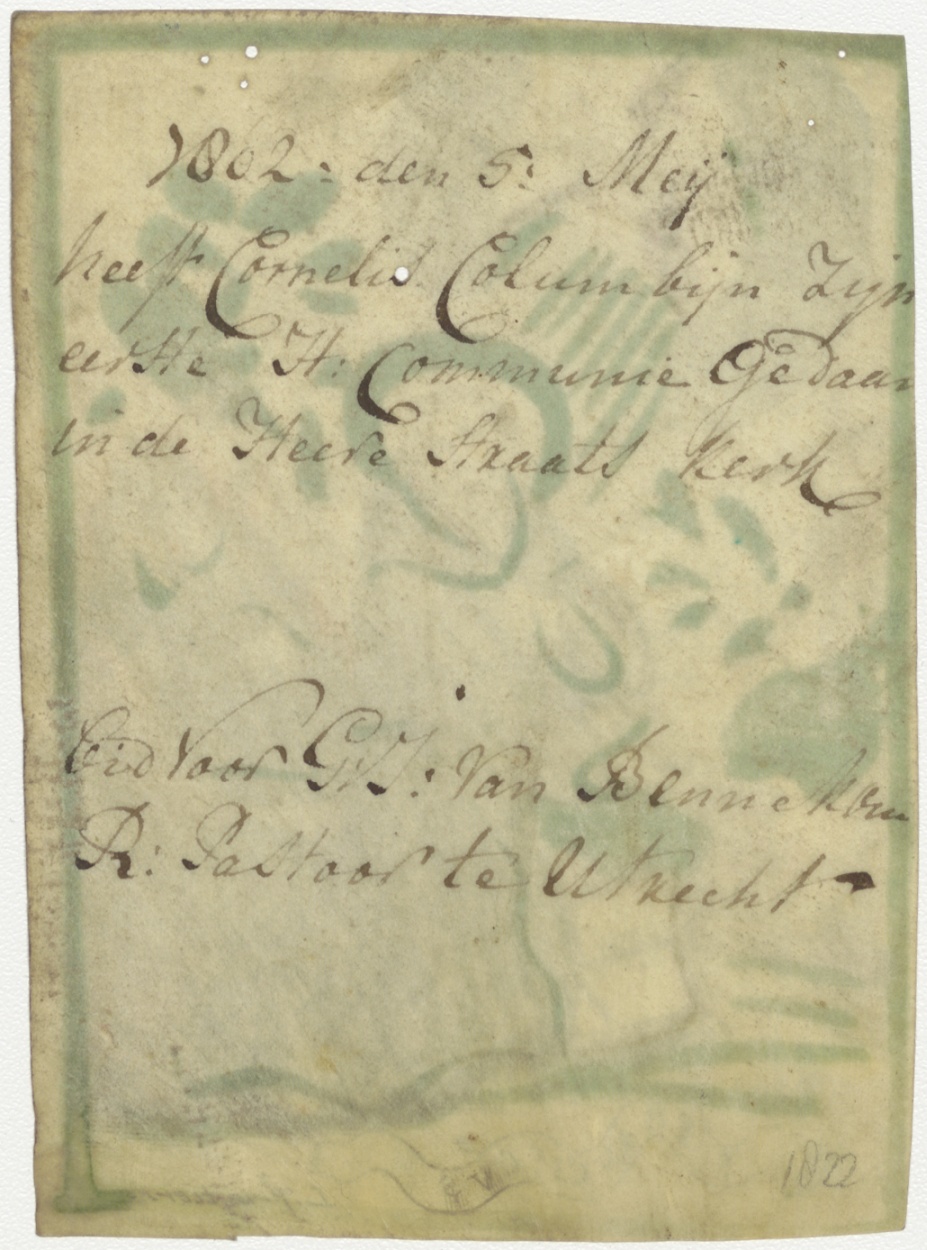 1802: den 5: Meij
heeft Cornelis Columbijn Zijn
eerste H: Communie Gedaan
in de Heere Straats kerk
bid Voor G: J: Van Bennekom
R: Pastoor te Utrecht
1822